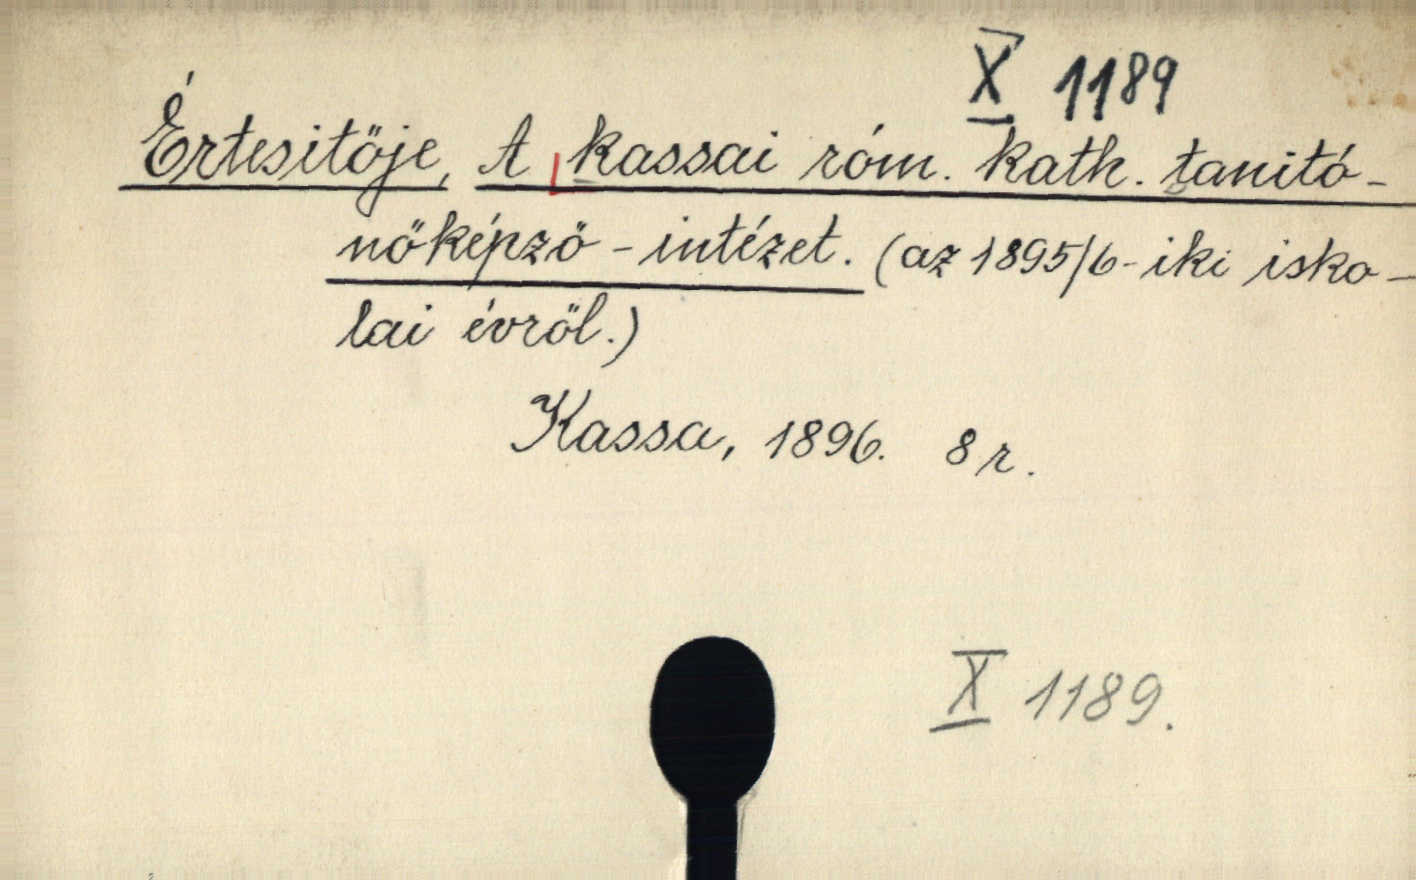 X 1189
Értesitője, A kassai róm. kath. tanitó-
nőképző-intézet. (az 1895/6-iki isko-
lai évről.)
Kassa, 1896. 8 r.
X 1189.